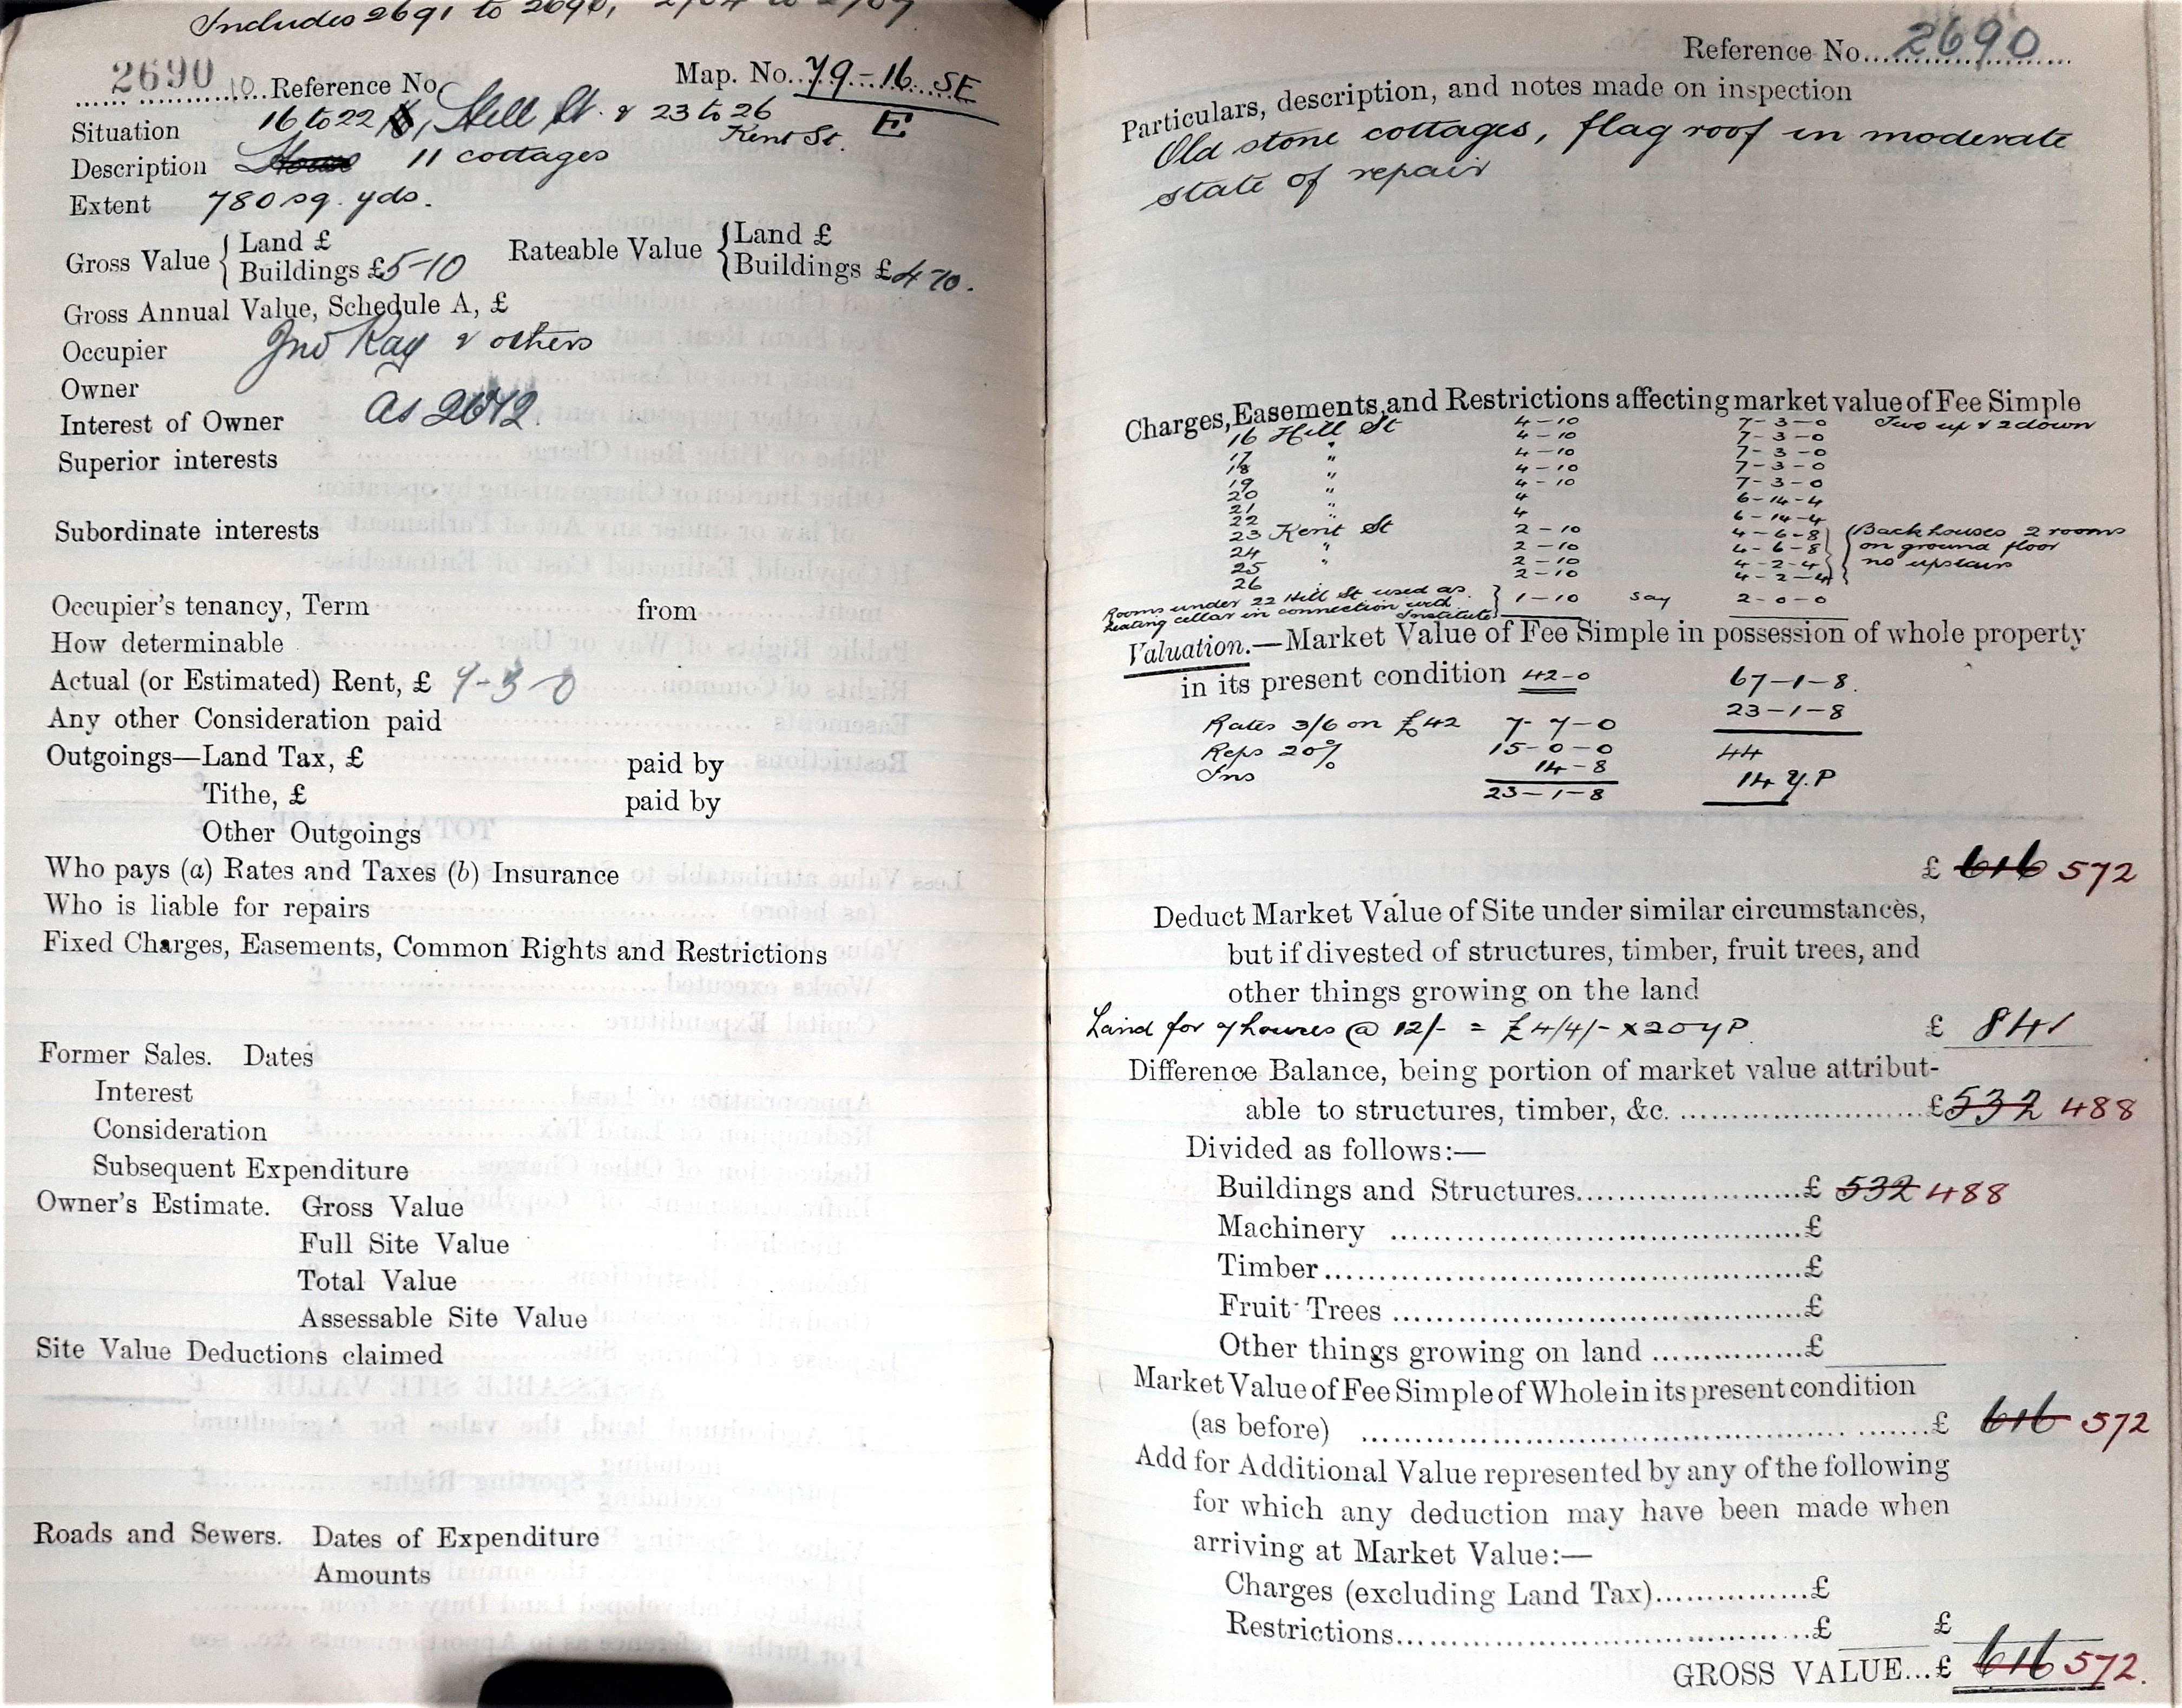 Includes 2691 to 269
2690 10 Reference No. Map. No. 79-16 SE
E
Situation 16 to 22 Hill St. & 23 to 26
Kent St.
Description House 11 cottages
Extent 780 sq. yds.
Gross Value { Land £
Buildings £5-10
Rateable Value { Land £
Buildings £4 10.
Gross Annual Value, Schedule A, £
Occupier Jno Kay & others
Owner
Interest of Owner As 2672.
Superior interests
Subordinate interests
Occupier's tenancy, Term from
How determinable
Actual (or Estimated) Rent, £ 7-3-0
Any other Consideration paid
Outgoings—Land Tax, £ paid by
Tithe, £ paid by
Other Outgoings
Who pays (a) Rates and Taxes (b) Insurance
Who is liable for repairs
Fixed Charges, Easements, Common Rights and Restrictions
Former Sales. Dates
Interest
Consideration
Subsequent Expenditure
Owner's Estimate. Gross Value
Full Site Value
Total Value
Assessable Site Value
Site Value Deductions claimed
Roads and Sewers. Dates of Expenditure
Amounts
Reference No. 2690
Particulars, description, and notes made on inspection
Old stone cottages, flag roof in moderate
state of repair
Charges, Easements, and Restrictions affecting market value of Fee Simple
16 Hill St 4-10 7-3-0 Two up & 2 down
17 " 4-10 7-3-0
18 " 4-10 7-3-0
19 " 4-10 7-3-0
20 " 4-10 7-3-0
21 " 4 6-14-4
22 " 4 6-14-4
23 Kent St 2-10 4-6-8 { Back houses 2 rooms
24 " 2-10 4-6-8 on ground floor
25 " 2-10 4-2-4 no upstairs
26 2-10 4-2-4
Rooms under 22 Hill St used as
heating cellar in connection with
Institute } 1-10 say 2-0-0
Valuation.—Market Value of Fee Simple in possession of whole property
in its present condition 42-0 67-1-8.
23-1-8
Rates 3/6 on £42 7-7-0
Reps 20% 15-0-0 44
Ins 14-8 14 Y.P
23-1-8
£ 616 572
Deduct Market Value of Site under similar circumstances,
but if divested of structures, timber, fruit trees, and
other things growing on the land
Land for 7 houses @ 12/- = £4/4/- x 20 YP £ 84
Difference Balance, being portion of market value attribut-
able to structures, timber, &c. £532 488
Divided as follows:—
Buildings and Structures £ 532 488
Machinery £
Timber £
Fruit Trees £
Other things growing on land £
Market Value of Fee Simple of Whole in its present condition
(as before) £ 616 572
Add for Additional Value represented by any of the following
for which any deduction may have been made when
arriving at Market Value:—
Charges (excluding Land Tax) £
Restrictions £ £
GROSS VALUE...£ 616 572.